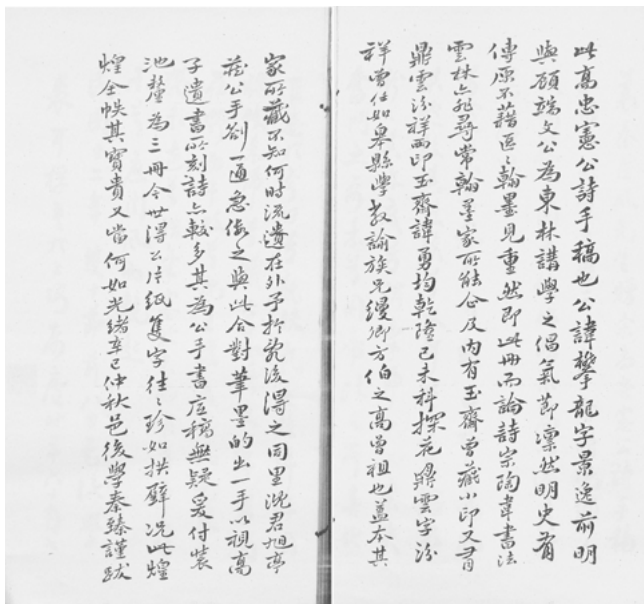 此高忠憲公詩手稿也公諱攀龍字景逸前明
與顧端文公為東林講學之倡氣節凜然明史有
傳原不藉區〻翰墨見重然即此冊而論詩宗陶韋書法
雲林亦非尋常翰墨家所能企及內有玉齋曾藏小印又有
鼎雲汾祥兩印玉齋諱勇均乾隆己未科探花鼎雲字汾
祥曾任如皋縣學教諭族兄緩卿方伯之高曾祖也蓋本其
家所藏不知何時流遺在外予於亂後得之同里沈君旭亭
藏公手劄一通急假之與此合對筆墨的出一手以視高
子遺書所刻詩亦較多其為公手書底稿無疑爰付裝
池釐為三冊今世得公片紙隻字往〻珍如拱璧況此煌
煌全帙其寶貴又當何如光緒辛巳仲秋邑後學秦臻謹跋